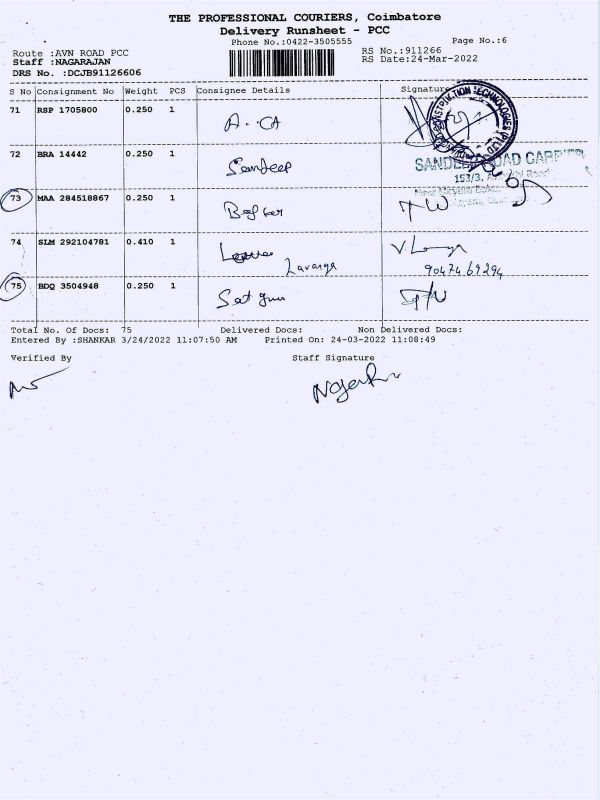 THE PROFESSIONAL COURIERS, Coimbatore
Delivery Runsheet - PCC
Phone No.:0422-3505555 Page No.:6
Route :AVN ROAD PCC RS No.:911266
Staff :NAGARAJAN RS Date:24-Mar-2022
DRS No. :DCJB91126606
S No Consignment No Weight PCS Consignee Details Signature
71 RSP 1705800 0.250 1
72 BRA 14442 0.250 1 Sandeep
153/3,
73 MAA 284518867 0.250 1
74 SLM 292104781 0.410 1
Lavanya
9047469294
75 BDQ 3504948 0.250 1
Total No. Of Docs: 75 Delivered Docs: Non Delivered Docs:
Entered By :SHANKAR 3/24/2022 11:07:50 AM Printed On: 24-03-2022 11:08:49
Verified By Staff Signature